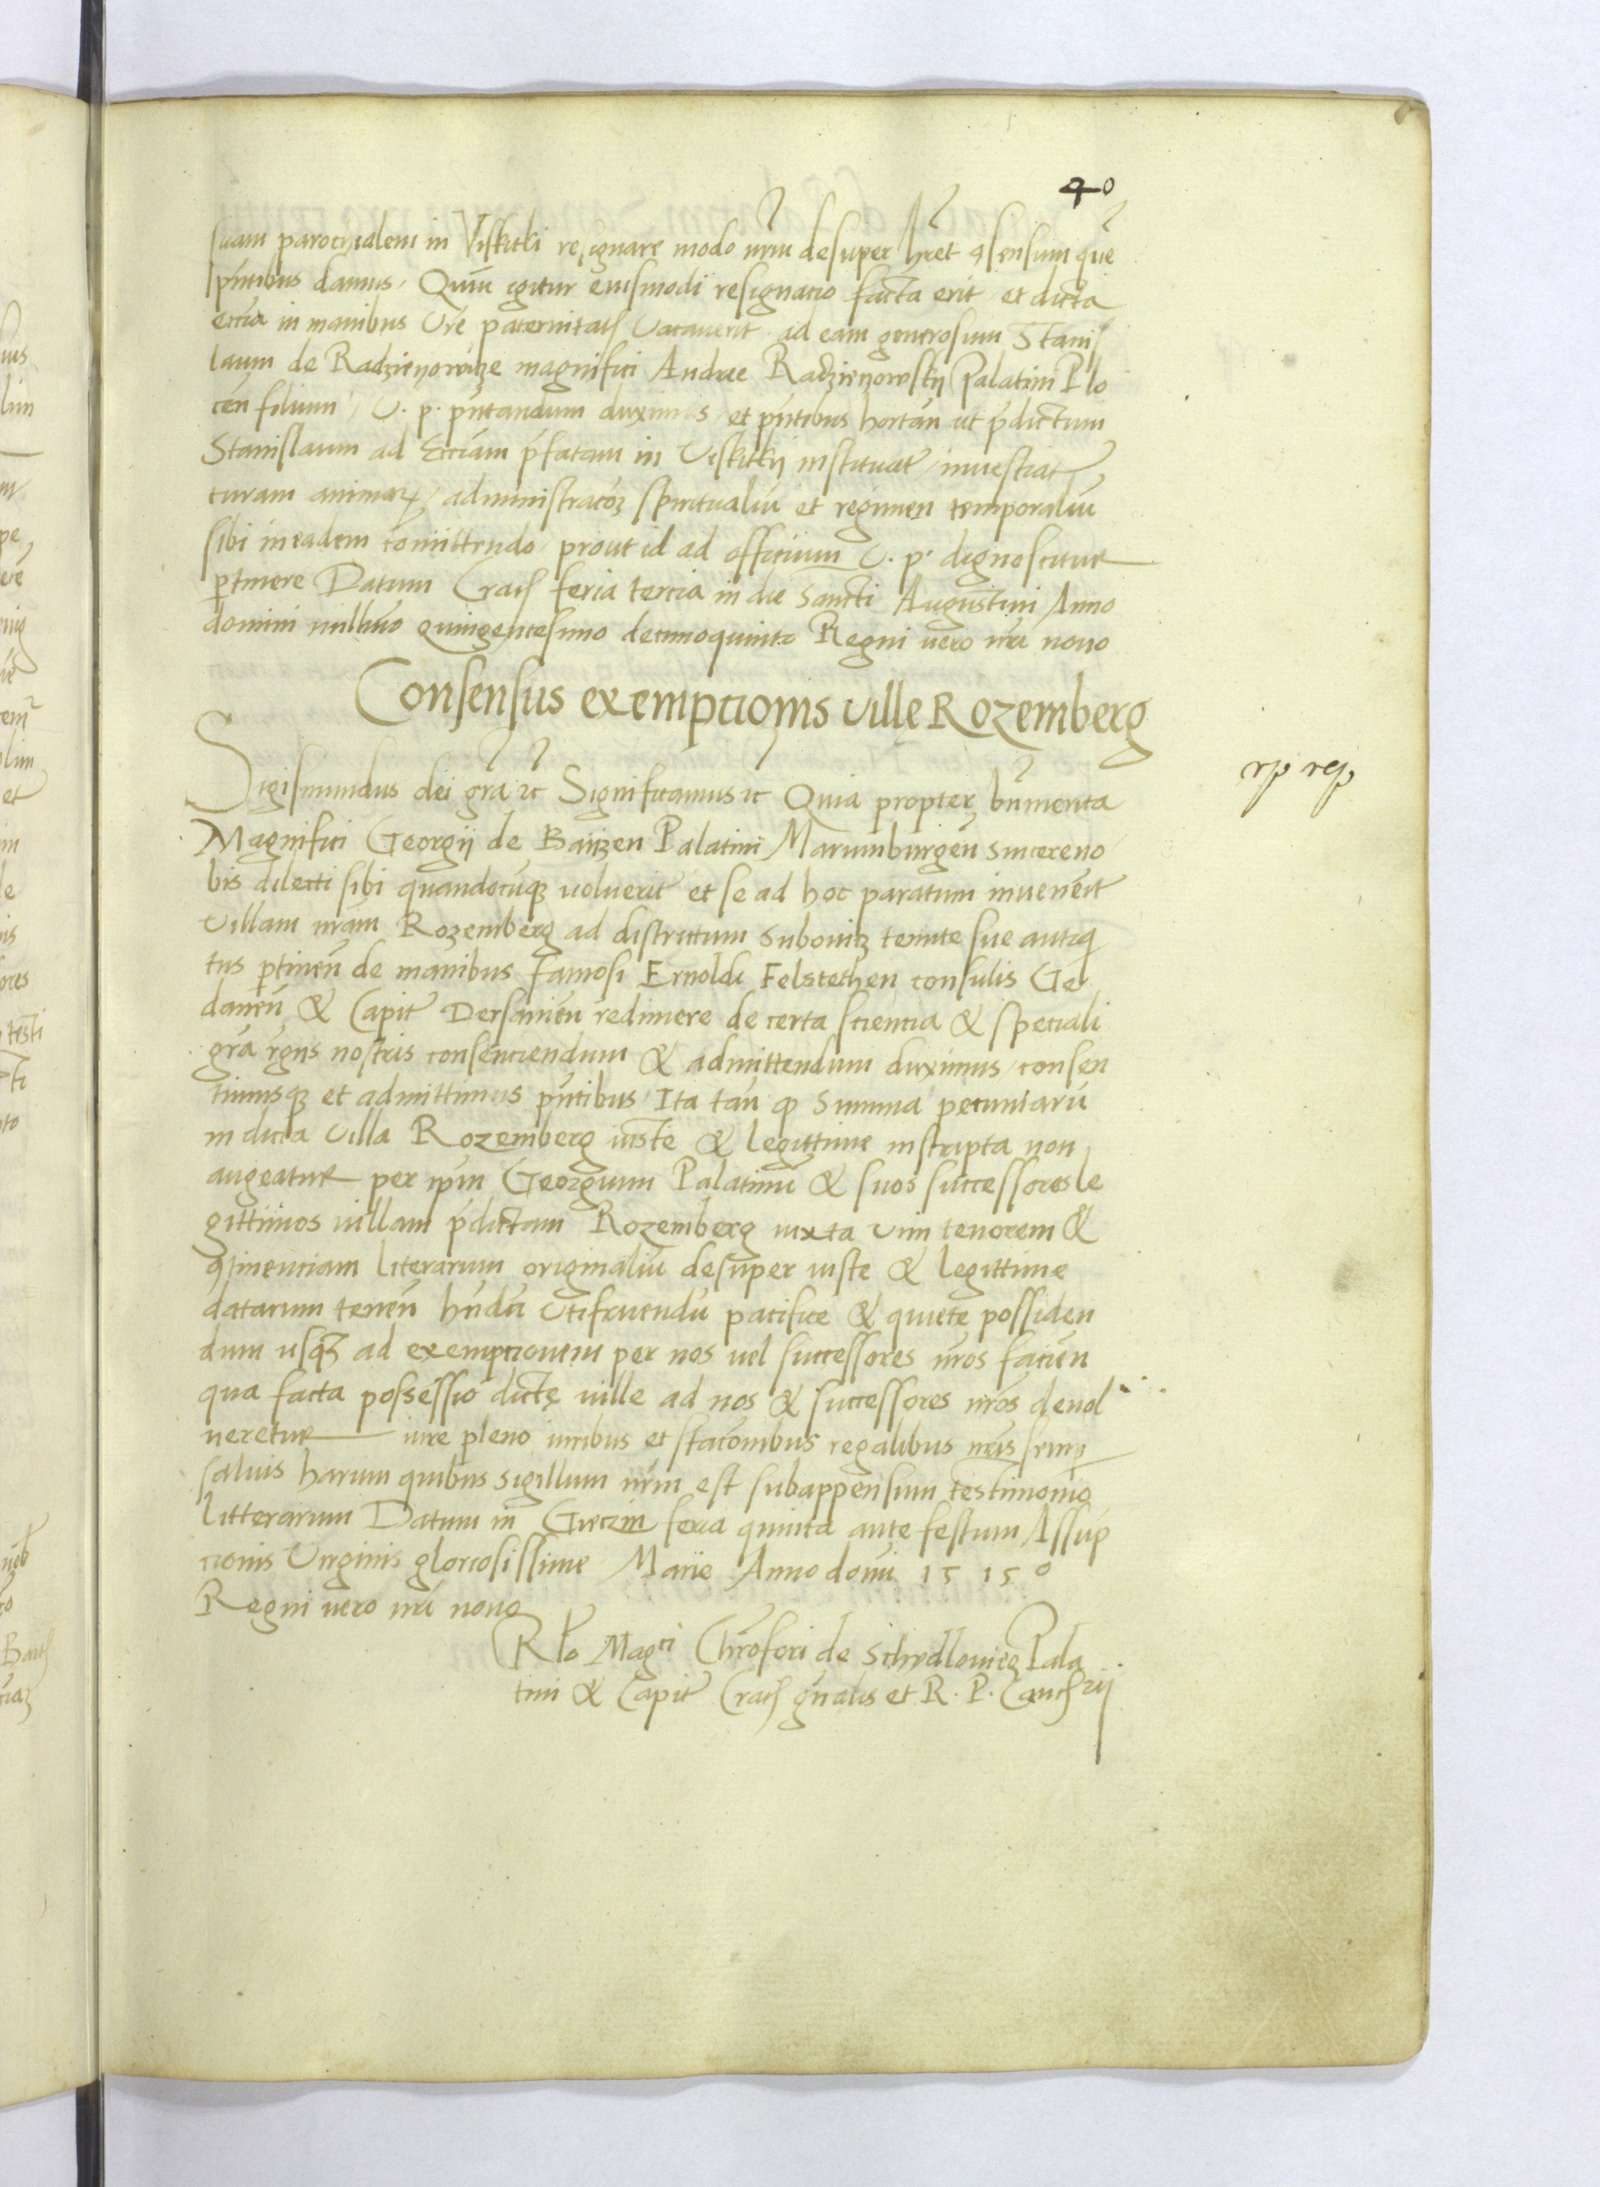 40
suam parochialem in Viskitki resignare modo nrm̄ desuper hr̄et ↄsensum quē
pn̄tibus damus, Quū igitur euismodi resignacio facta erit et dicta
eccīa in manibus Vrē paternitatꝭ vacauerit ad eam generosum Stanis
laum de Radzieyowicze magnifici Andree Radzieyowskij Palatini Plo
ceñ filium, V. p. pn̄tandum duximus et pn̄tibus hortañ ut pdictum
Stanislaum ad Ecciam pfatam in Viskitkij instituat, inuestiat
curam animaꝝ, administracōꝫ spiritualiū et regimen temporaliū
sibi in eadem comittendo, prout id ad officium V. p. dignoscitur
ptinere Datum Cracꝭ feria tercia in die Sancti Augustini Anno
domini millimo quingentesimo decimoquinto Regni vero nr̄i nono
Consensus exemptionis ville Rozemberg
Sigismundus dei grā ⁊c Significamus ⁊c Quia propter bn̄merita
Magnifici Georgij de Bayzen Palatini Mariinburgeñ sincere no
bis dilecti sibi quandocūqꝫ voluerit et se ad hoc paratum inuenerit
villam nrām Rozemberg ad districtum Subouitz tenute sue antiq
tus ptineñ de manibus famosi Ernoldi Felstethen consulis Ge
daneñ & Capit Dersauieñ redimere de certa sciencia & speciali
grā rgūs nostris consenciendum & admittendum duximus, consen
timusqꝫ et admittimus pn̄tibus, Ita tañ ꝙ Summa pecuniarū
in dicta villa Rozemberg iuste & legittime inscripta non
augeatur per ipm̄ Georgium Palatinū & suos successores le
gittimos villam pdictam Rozemberg iuxta vim tenorem &
ↄtinenciam literarum originaliū desuper iuste & legittime
datarum teneñ hn̄dū Vtifruendū pacifice & quiete possiden
dum usqꝫ ad exemptionem per nos vel successores nrōs facieñ
qua facta possessio dictę ville ad nos & successores nrōs deuol
ueretur iure pleno iuribus et stacōnibus regalibus nris semꝑ
saluis harum quibus sigillum nrm̄ est subappensum testimonio
litterarum Datum in feria quinta ante festum Assup
cionis Virginis gloriosissime Marie Anno domī 1515°
Regni vero nrī nono
rꝑ reꝑ
Rlo Magci Chrōferi de Schydlowiecz Pala
tini & Capit Cracꝭ gn̄alis et R. P. Cancꝭrij